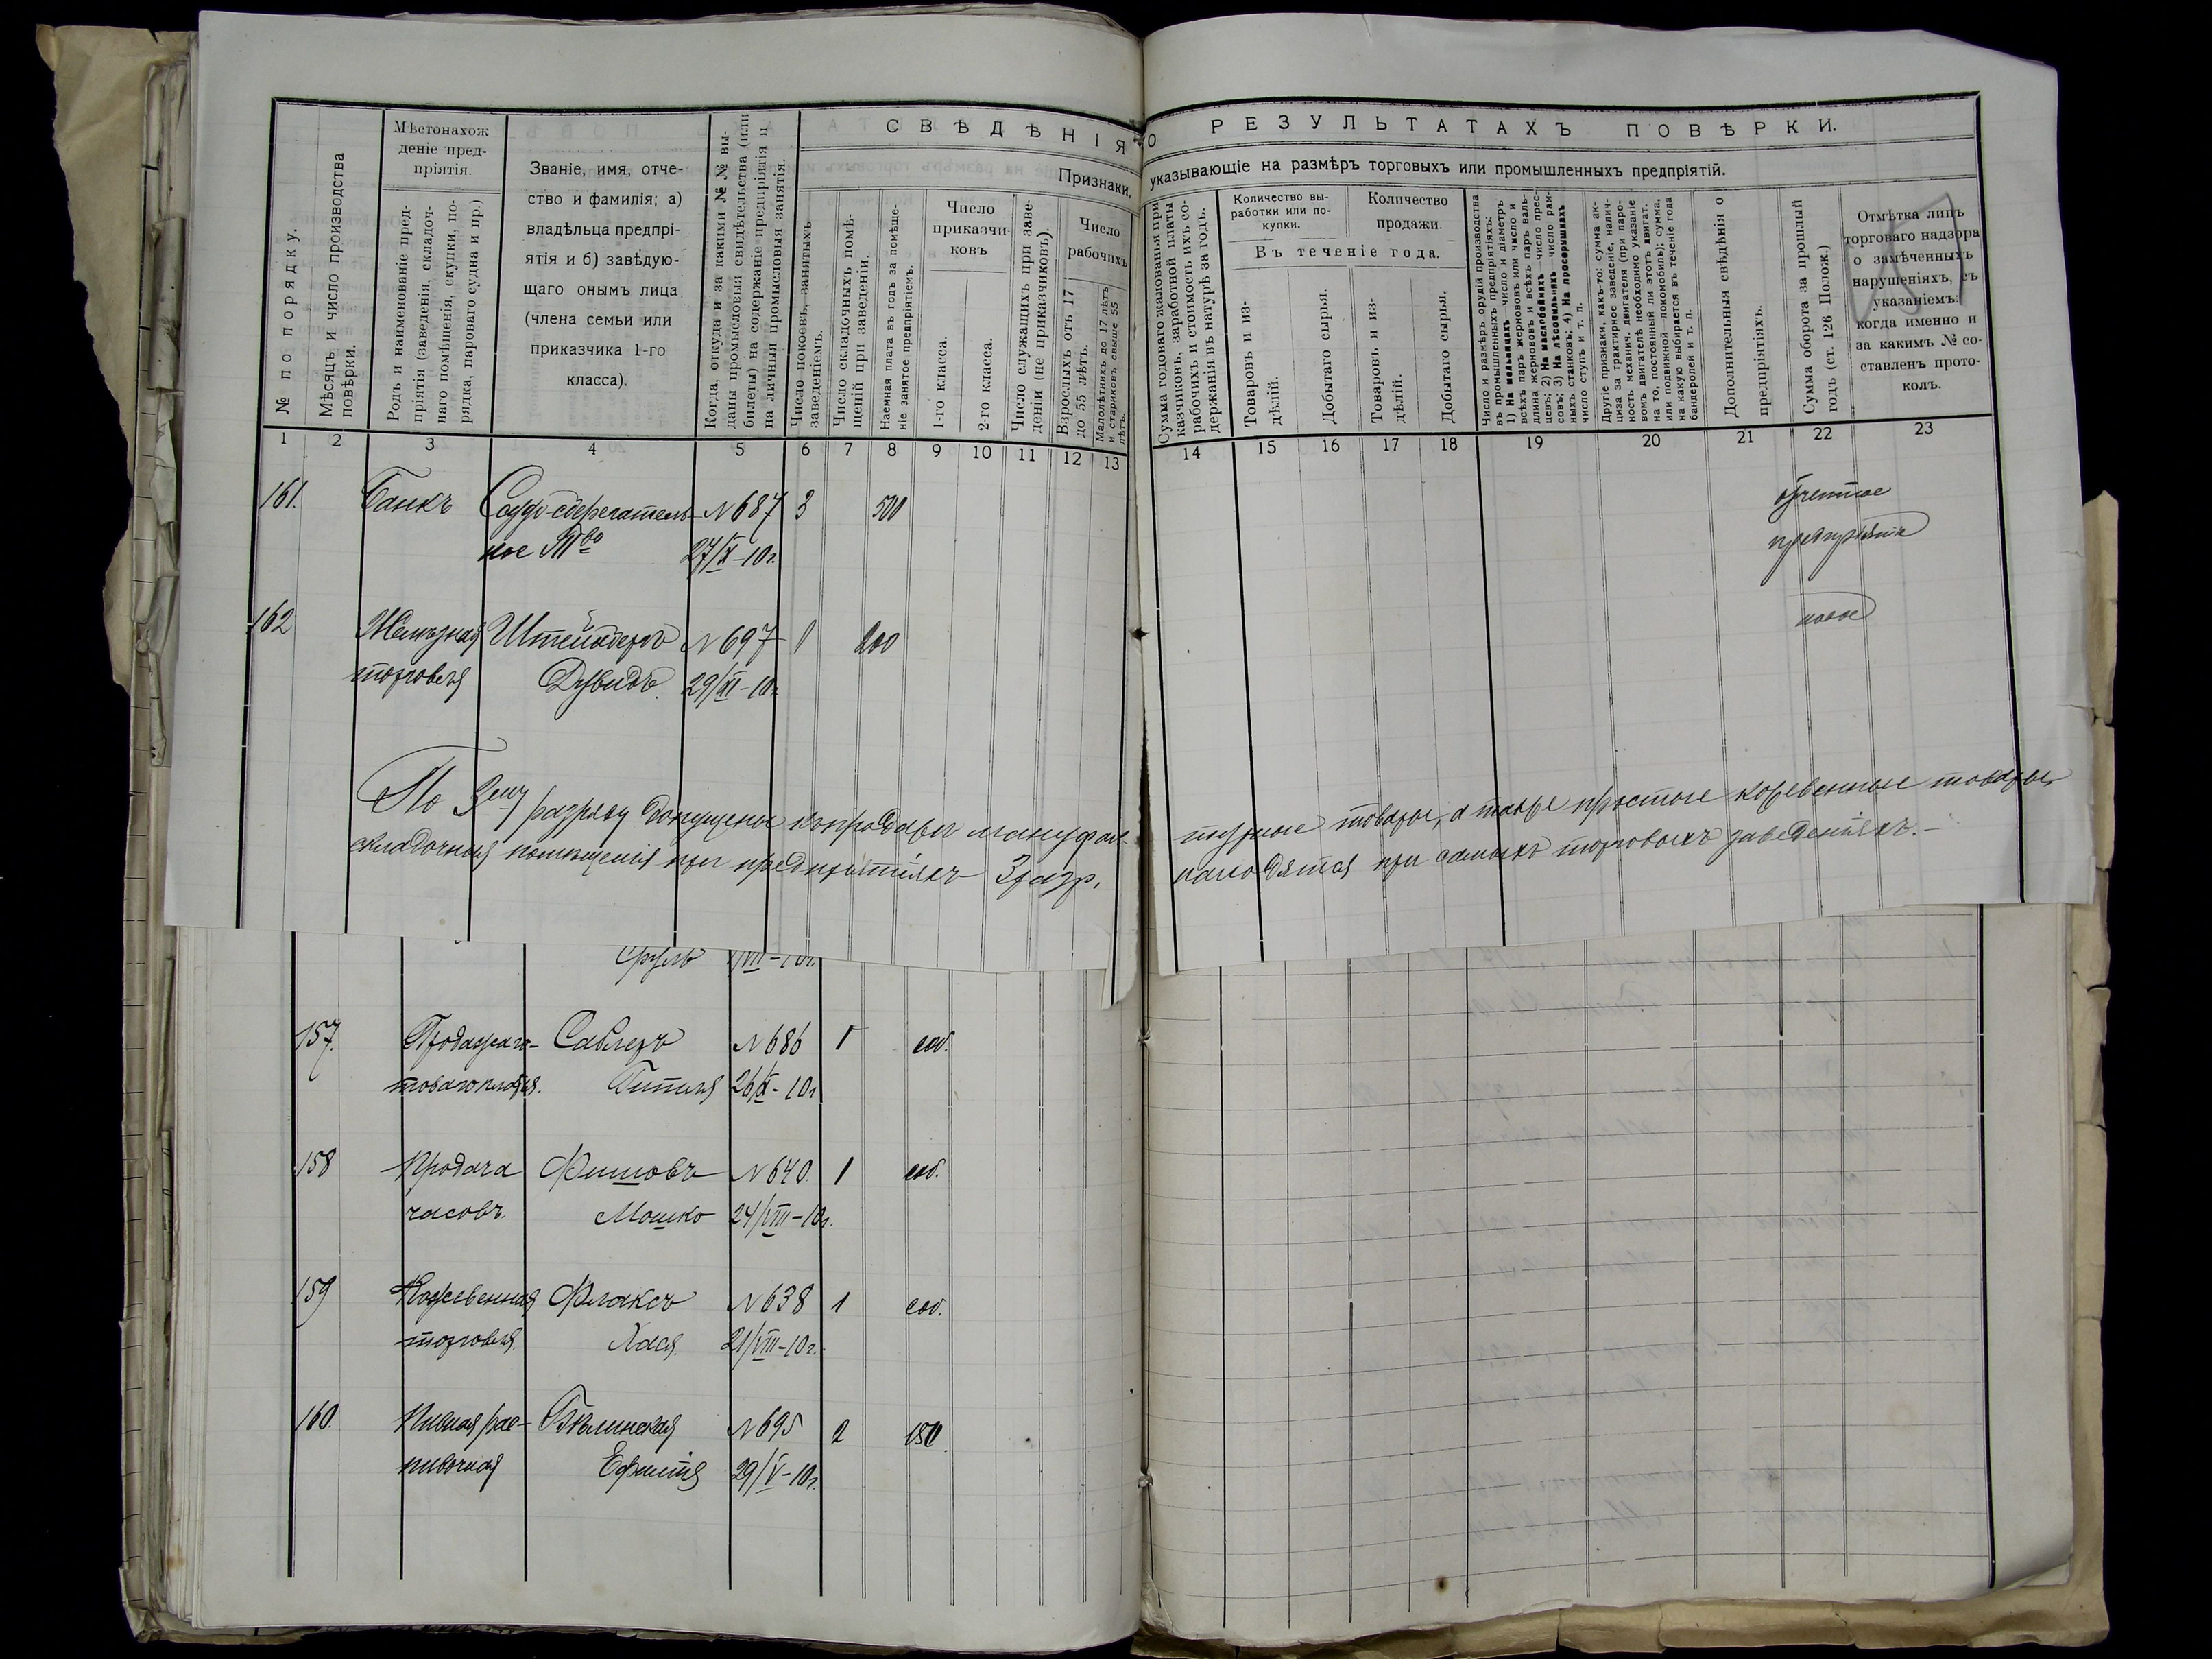 СВѢДѢНІЯ О РЕЗУЛЬТАТАХЪ ПОВѢРКИ.
Признаки, указывающіе на размѣръ торговыхъ или промышленныхъ предпріятій.
№ по порядку.
Мѣсяцъ и число производства
повѣрки.
Мѣстонахож
деніе пред-
пріятія.
Родъ и наименованіе пред-
пріятія (заведенія, складоч-
наго помѣщенія, скупки, по-
рядка, пароваго судна и пр.)
Званіе, имя, отче-
ство и фамилія; а)
владѣльца предпрі-
ятія и б) завѣдую-
щаго онымъ лица
(члена семьи или
приказчика 1-го
класса).
Когда, откуда и за какими №№ вы-
даны промысловыя свидѣтельства (или
билеты) на содержаніе предпріятія и
на личныя промысловыя занятія.
Число покоевъ, занятыхъ
заведеніемъ.
Число складочныхъ помѣ-
щеній при заведеніи.
Наемная плата въ годъ за помѣще-
ніе занятое предпріятіемъ.
Число
приказчи-
ковъ
1-го класса.
2-го класса.
Число служащихъ при заве-
деніи (не приказчиковъ).
Число
рабочихъ
Взрослыхъ отъ 17
до 55 лѣтъ.
Малолѣтнихъ до 17 лѣтъ
и стариковъ свыше 55
лѣтъ.
Сумма годоваго жалованья при-
казчиковъ, заработной платы
рабочихъ и стоимость ихъ со-
держанія въ натурѣ за годъ.
Количество вы-
работки или по-
купки.
Количество
продажи.
Въ теченіе года.
Товаровъ и из-
дѣлій.
Добытаго сырья.
Товаровъ и из-
дѣлій.
Добытаго сырья.
Число и размѣръ орудій производства
въ промышленныхъ предпріятіяхъ:
1) На мельницахъ число и діаметръ
всѣхъ паръ жернововъ или число и
длина жернововъ и всѣхъ паръ валь-
цевъ; 2) На маслобойняхъ число прес-
совъ; 3) На лѣсопильняхъ число рам-
ныхъ станковъ; 4) На просорушкахъ
число ступъ и т. п.
Другіе признаки, какъ-то: сумма ак-
циза за трактирное заведеніе, налич-
ность механич. двигателя (при паро-
вомъ двигателѣ необходимо указаніе
на то, постоянный ли этотъ двигат.
или подвижной локомобиль); сумма,
на какую выбирается въ теченіе года
бандеролей и т. п.
Дополнительныя свѣдѣнія о
предпріятіяхъ.
Сумма оборота за прошлый
годъ (ст. 126 Полож.)
Отмѣтка лицъ
торговаго надзора
о замѣченныхъ
нарушеніяхъ, съ
указаніемъ:
когда именно и
за какимъ № со-
ставленъ прото-
колъ.
1 2 3 4 5 6 7 8 9 10 11 12 13 14 15 16 17 18 19 20 21 22 23
161. Банкъ Ссудо-сберегатель- №687 3 500 отчетное
ное Тво 27/IX-10г. предпріятіе
162 Желѣзная Штейнбергъ №697 1 200 новое
торговля Дувидъ 29/XI-10г.
По 3ему разряду допущены къ продажѣ мануфак- турные товары, а также простые кожевенные товары,
складочныя помѣщенія при предпріятіяхъ 3 разр. находятся при самыхъ торговыхъ заведеніяхъ.-
Сруль /VIII-10г.
157. Продажа го- Саблеръ №686 1 соб.
товаго платья. 26/IX-10г.
158 Продажа Фишовъ №640. 1 соб.
часовъ. Мошко 24/VIII-10г.
159 Кожевенная Флаксъ №638 1 соб.
торговля. Хася 21/VIII-10г.
160. Пивная рас- Бялинская №695 2 180.
пивочная Ефимія 29/V-10г.